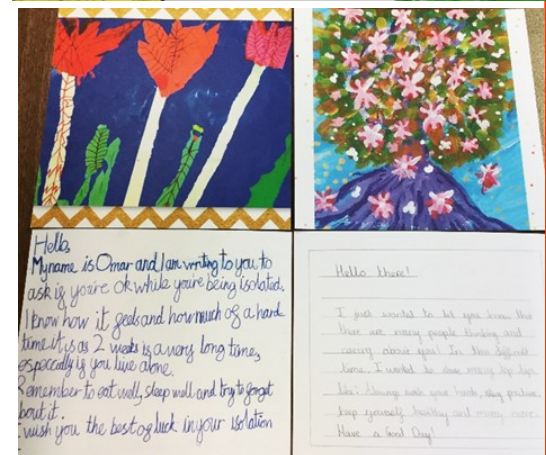 Hello,
My name is Omar and I am writing to you to
ask if you're OK while you're being isolated.
I know how it feels and how much of a hard
time it is as 2 weeks is a very long time,
especially if you live alone.
Remember to eat well, sleep well and try to forget
bout it.
I wish you the best of luck in your isolation
Hello there!
I just wanted to let you know that
there are many people thinking and
caring about you! In this difficult
time, I wanted to share many top tips
like: Always wash your hands, stay positive,
keep yourself healthy and many more.
Have a Good Day!